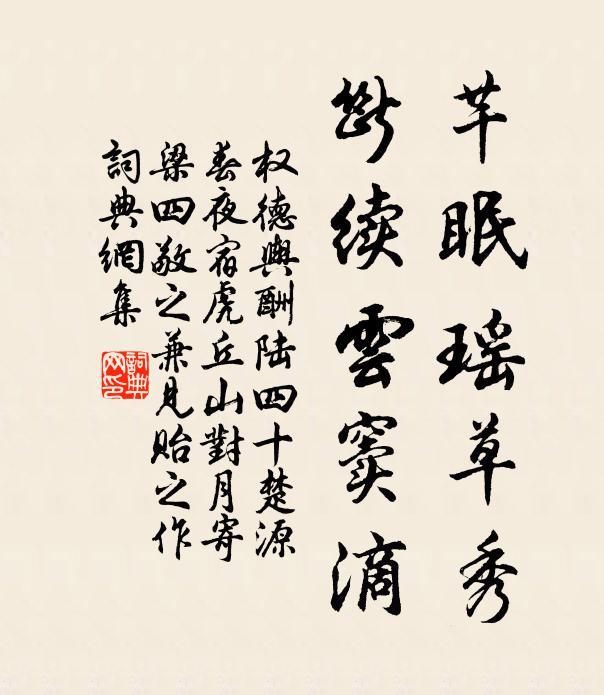 芊眠瑶草秀
斷续雲窦滴
权德輿酬陆四十楚源
春夜宿虎丘山對月寄
梁四敬之兼見贻之作
詞典網集
詞典
网印